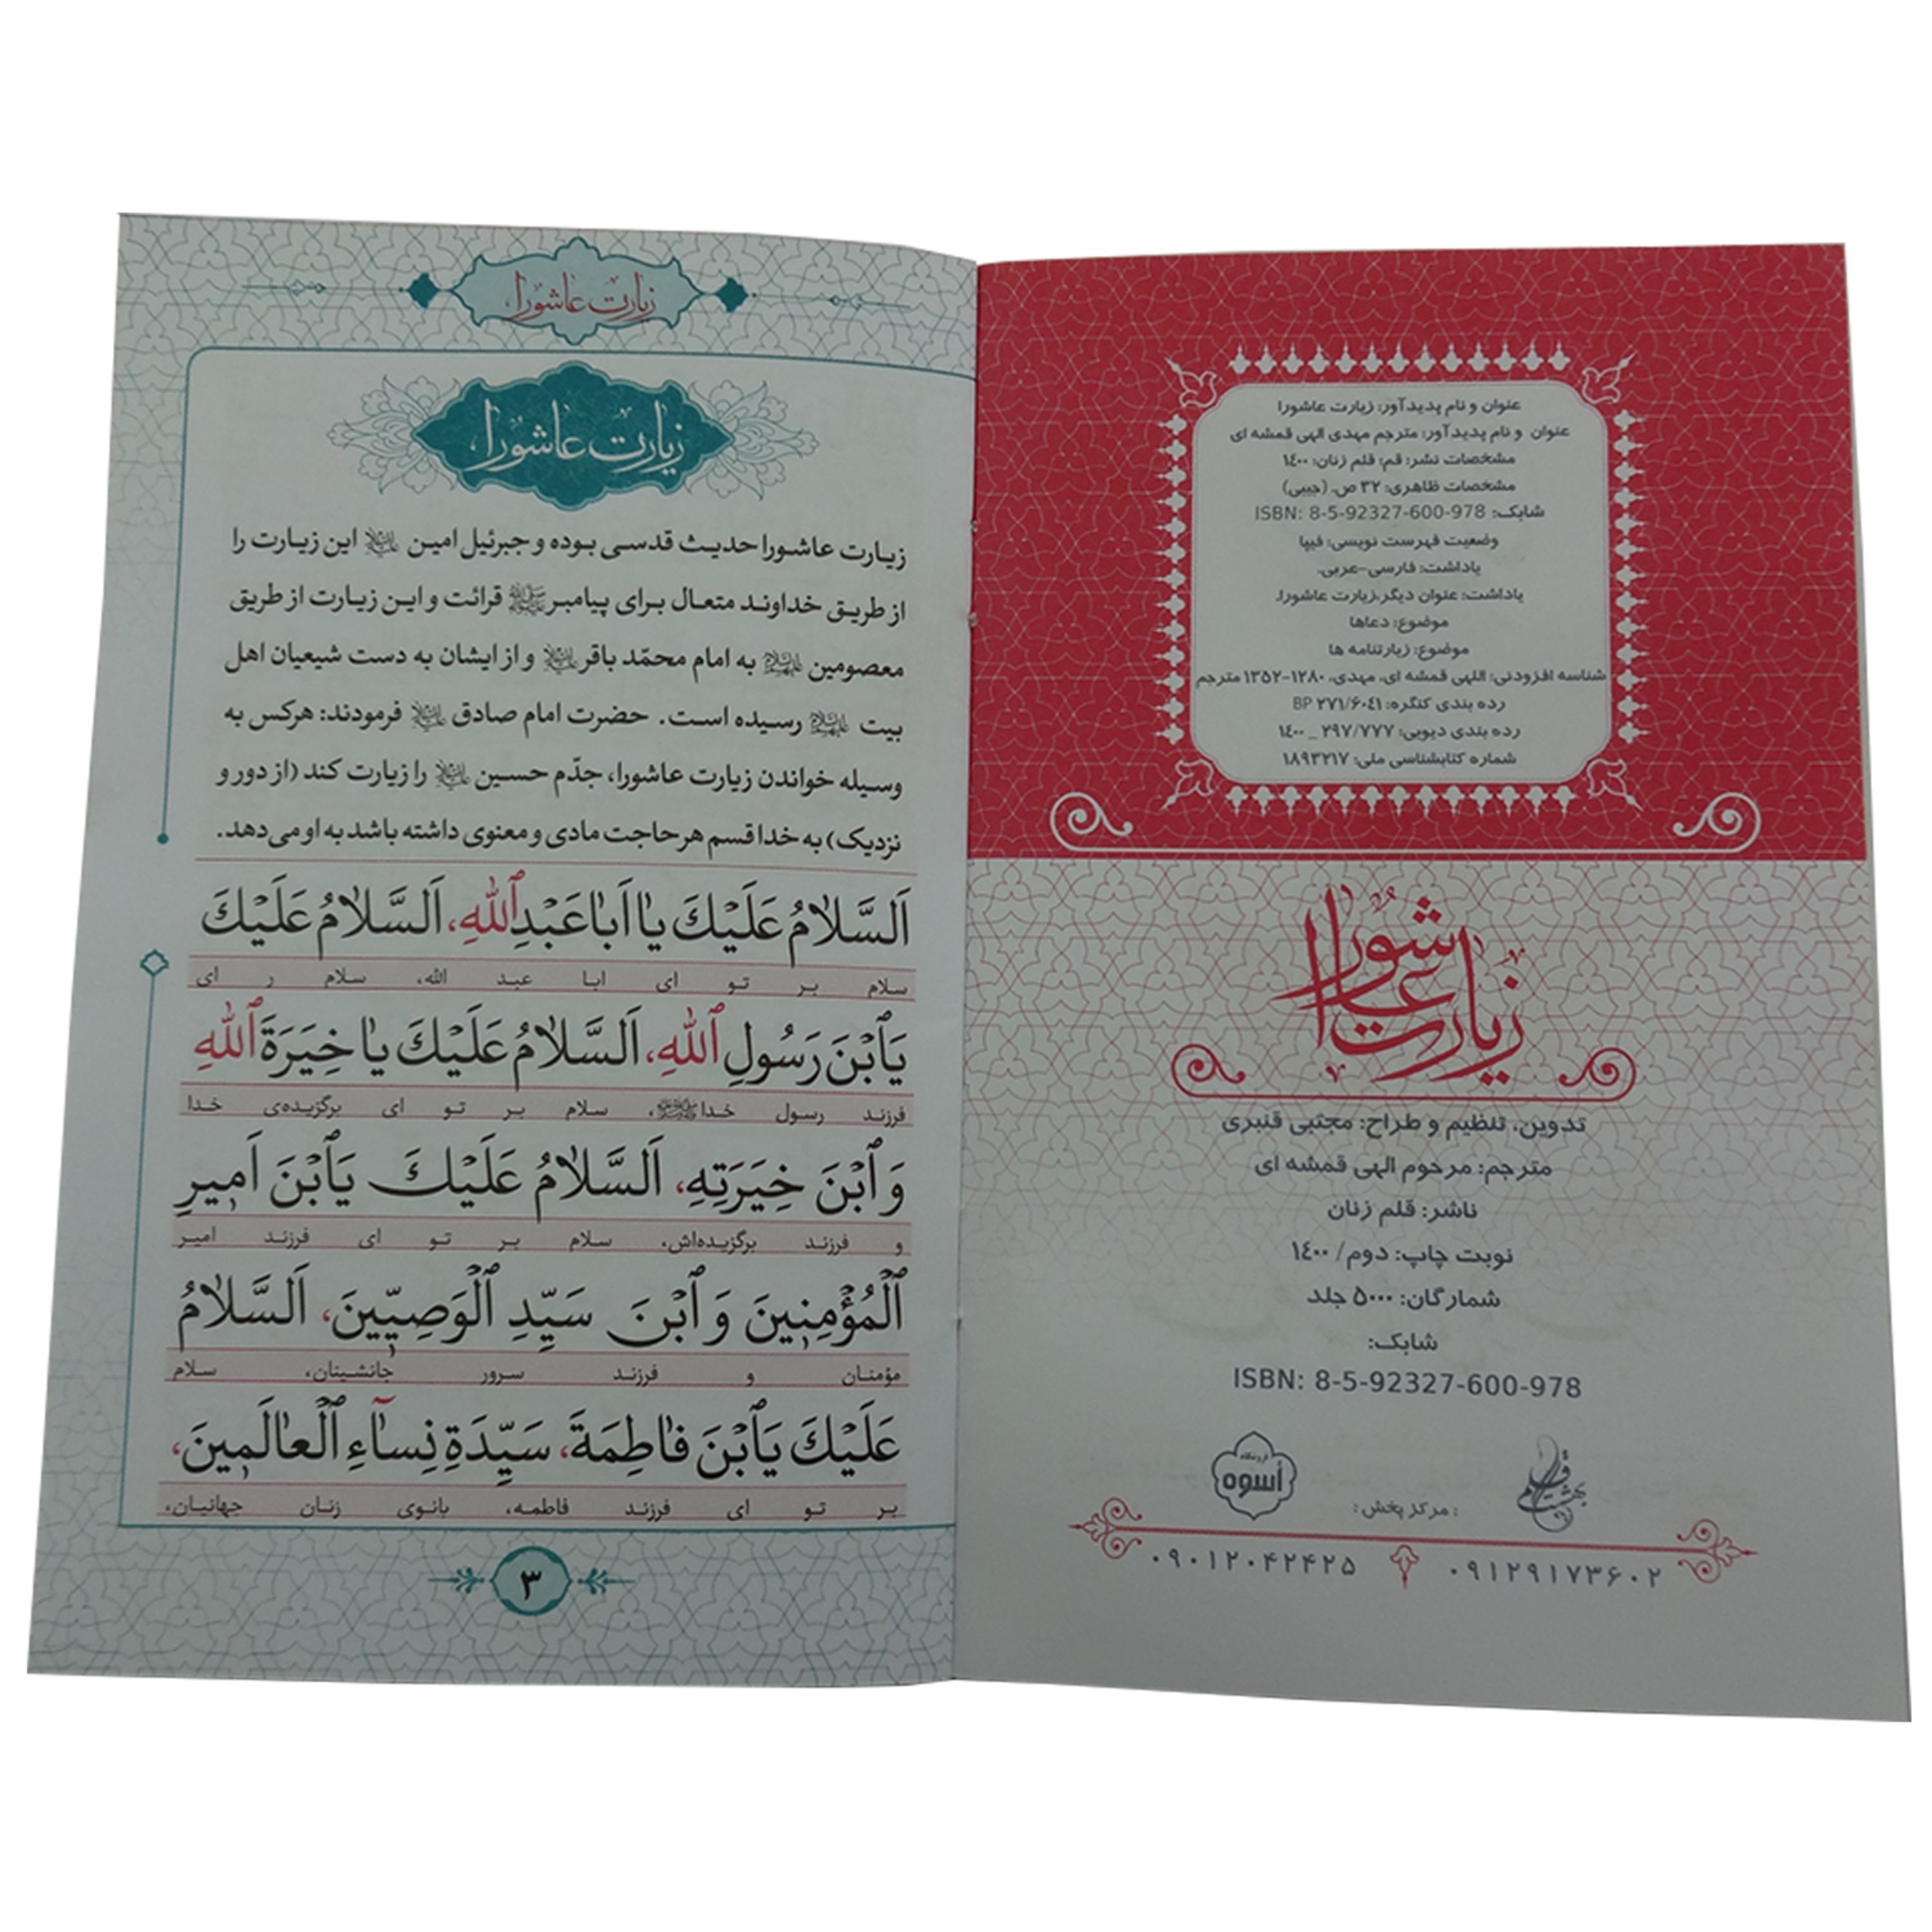 عنوان و نام پدیدآور: زیارت عاشورا
عنوان و نام پدیدآور: مترجم مهدی الهی قمشه ای
مشخصات نشر: قم: قلم زنان: ۱۴۰۰
مشخصات ظاهری: ۳۲ ص. (جیبی)
شابک: ISBN: 8-5-92327-600-978
وضعیت فهرست نویسی: فیپا
یاداشت: فارسی-عربی.
یاداشت: عنوان دیگر.زیارت عاشورا.
موضوع: دعاها
موضوع: زیارتنامه ها
شناسه افزودنی: اللهی قمشه ای، مهدی، ۱۲۸۰-۱۳۵۲ مترجم
رده بندی کنگره: BP ۲۷۱/۶۰۴۱
رده بندی دیویی: ۲۹۷/۷۷۷ _ ۱۴۰۰
شماره کتابشناسی ملی: ۱۸۹۳۲۱۷
زیارت عاشورا
تدوین، تنظیم و طراح: مجتبی قنبری
مترجم: مرحوم الهی قمشه ای
ناشر: قلم زنان
نوبت چاپ: دوم/ ۱۴۰۰
شمارگان: ۵۰۰۰ جلد
شابک:
ISBN: 8-5-92327-600-978
: مرکز پخش :
فروشگاه
أسوه
۰۹۱۲۹۱۷۳۶۰۲
۰۹۰۱۲۰۴۲۴۲۵
زیارت عاشورا
زیارت عاشورا
زیارت عاشورا حدیث قدسی بوده و جبرئیل امین علیه‌السلام این زیارت را
از طریق خداوند متعال برای پیامبر ﷺ قرائت و این زیارت از طریق
معصومین علیهم‌السلام به امام محمّد باقر علیه‌السلام و از ایشان به دست شیعیان اهل
بیت علیهم‌السلام رسیده است. حضرت امام صادق علیه‌السلام فرمودند: هرکس به
وسیله خواندن زیارت عاشورا، جدّم حسین علیه‌السلام را زیارت کند (از دور و
نزدیک) به خدا قسم هر حاجت مادی و معنوی داشته باشد به او می‌دهد.
اَلسَّلامُ عَلَیْكَ یا اَبا عَبْدِ ٱللهِ، اَلسَّلامُ عَلَیْكَ
سلام بر تو ای ابا عبد الله، سلام ر ای
یَٱبْنَ رَسُولِ ٱللهِ، اَلسَّلامُ عَلَیْكَ یا خِیَرَةَ ٱللهِ
فرزند رسول خدا ﷺ، سلام بر تو ای برگزیده‌ی خدا
وَ ٱبْنَ خِیَرَتِهِ، اَلسَّلامُ عَلَیْكَ یَٱبْنَ اَمیرِ
و فرزند برگزیده‌اش، سلام بر تو ای فرزند امیر
ٱلْمُؤْمِنینَ وَ ٱبْنَ سَیِّدِ ٱلْوَصِیّینَ، اَلسَّلامُ
مؤمنان و فرزند سرور جانشینان، سلام
عَلَیْكَ یَٱبْنَ فاطِمَةَ، سَیِّدَةِ نِسآءِ ٱلْعالَمینَ،
بر تو ای فرزند فاطمه، بانوی زنان جهانیان،
۳